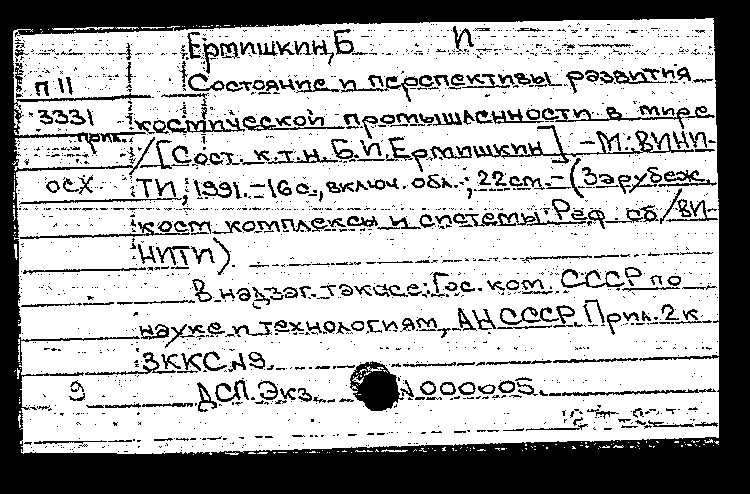 Ермишкин, Б И
П 11 Состояние и перспективы развития
3331 космической промышленности в мире
прил. /[Сост. к.т.н. Б.И. Ермишкин]. -М: ВИНИ-
осх ТИ, 1991.-16с., включ. обл.; 22см.-(Зарубеж.
косм комплексы и системы: Реф сб/ВИ-
НИТИ).
В надзаг. также: Гос. ком. СССР по
науке и технологиям, АН СССР. Прил. 2 к
ЗККС №9.
9 ДСП. Экз. 000005.